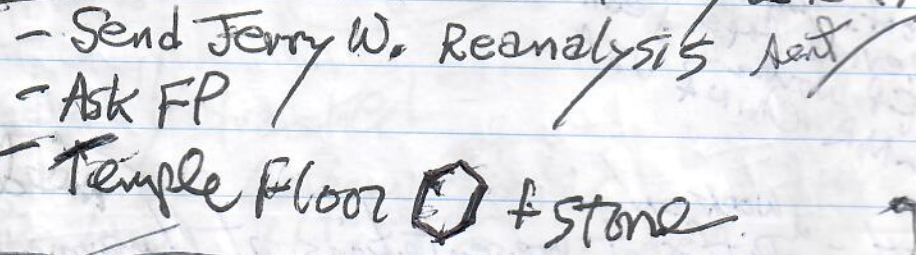 - Send Jerry W. Reanalysis sent
- Ask FP
- Temple Floor ⬡ + stone